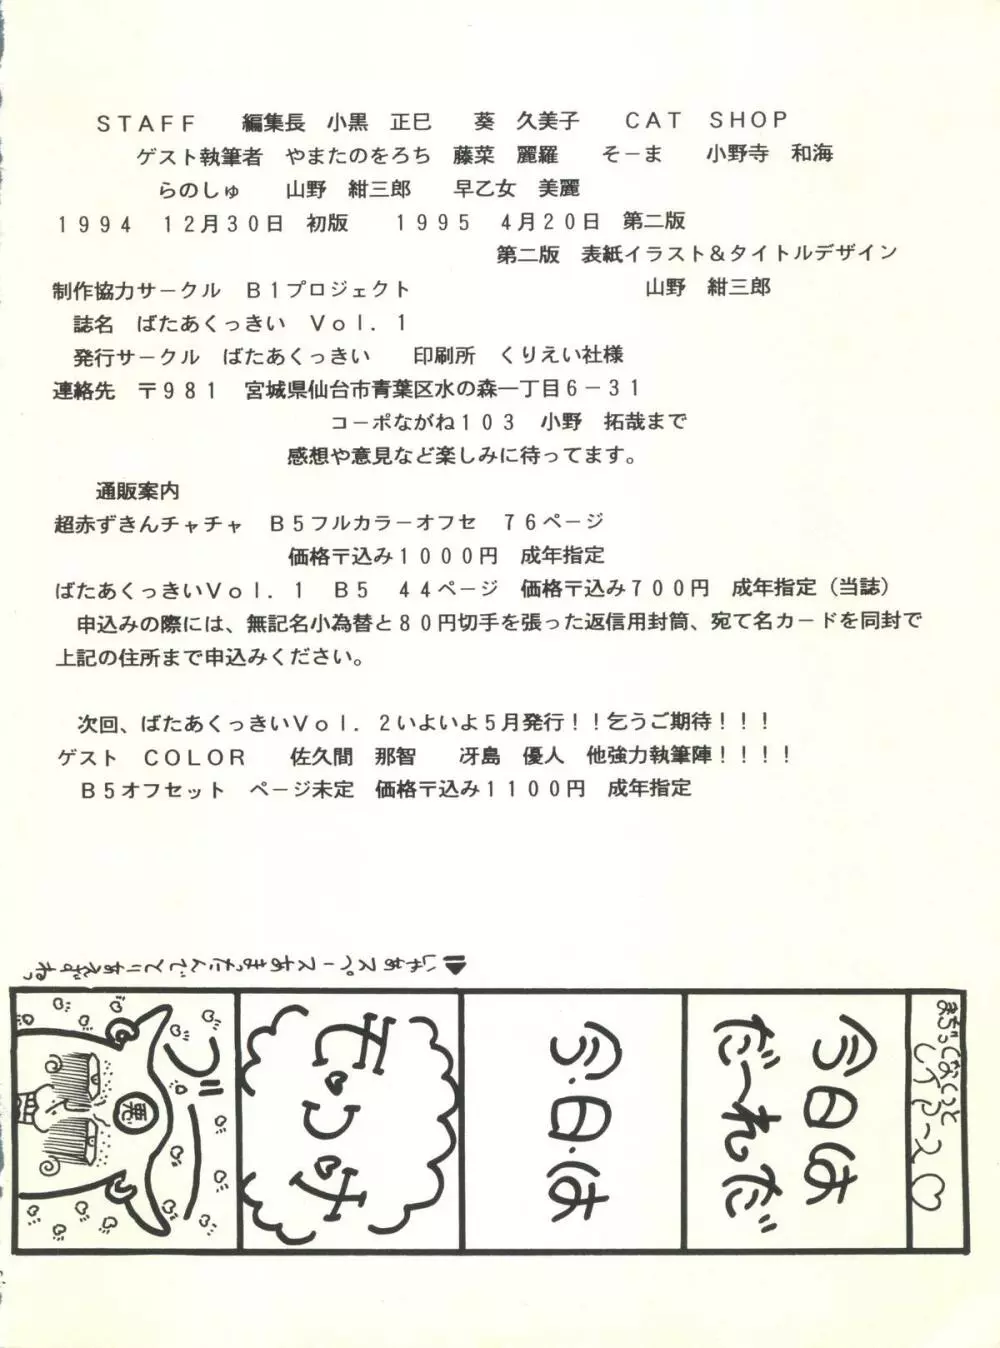 ＳＴＡＦＦ　　編集長　小黒　正巳　　葵　久美子　　ＣＡＴ　ＳＨＯＰ
ゲスト執筆者　やまたのをろち　藤菜　麗羅　　そーま　　小野寺　和海
らのしゅ　　山野　紺三郎　　早乙女　美麗
１９９４　１２月３０日　初版　　１９９５　４月２０日　第二版
第二版　表紙イラスト＆タイトルデザイン
制作協力サークル　Ｂ１プロジェクト　　山野　紺三郎
誌名　ばたあくっきい　Ｖｏｌ．１
発行サークル　ばたあくっきい　　印刷所　くりえい社様
連絡先　〒９８１　宮城県仙台市青葉区水の森一丁目６－３１
コーポながね１０３　小野　拓哉まで
感想や意見など楽しみに待ってます。
通販案内
超赤ずきんチャチャ　Ｂ５フルカラーオフセ　７６ページ
価格〒込み１０００円　成年指定
ばたあくっきいＶｏｌ．１　Ｂ５　４４ページ　価格〒込み７００円　成年指定（当誌）
申込みの際には、無記名小為替と８０円切手を張った返信用封筒、宛て名カードを同封で
上記の住所まで申込みください。
次回、ばたあくっきいＶｏｌ．２いよいよ５月発行！！乞うご期待！！！
ゲスト　ＣＯＬＯＲ　　佐久間　那智　　冴島　優人　他強力執筆陣！！！！
Ｂ５オフセット　ページ未定　価格〒込み１１００円　成年指定
じゃあスペースあまったんでとりあえずねっ
今日は
だ〜れだ
今・日・は
モッコリ
ブー
悪